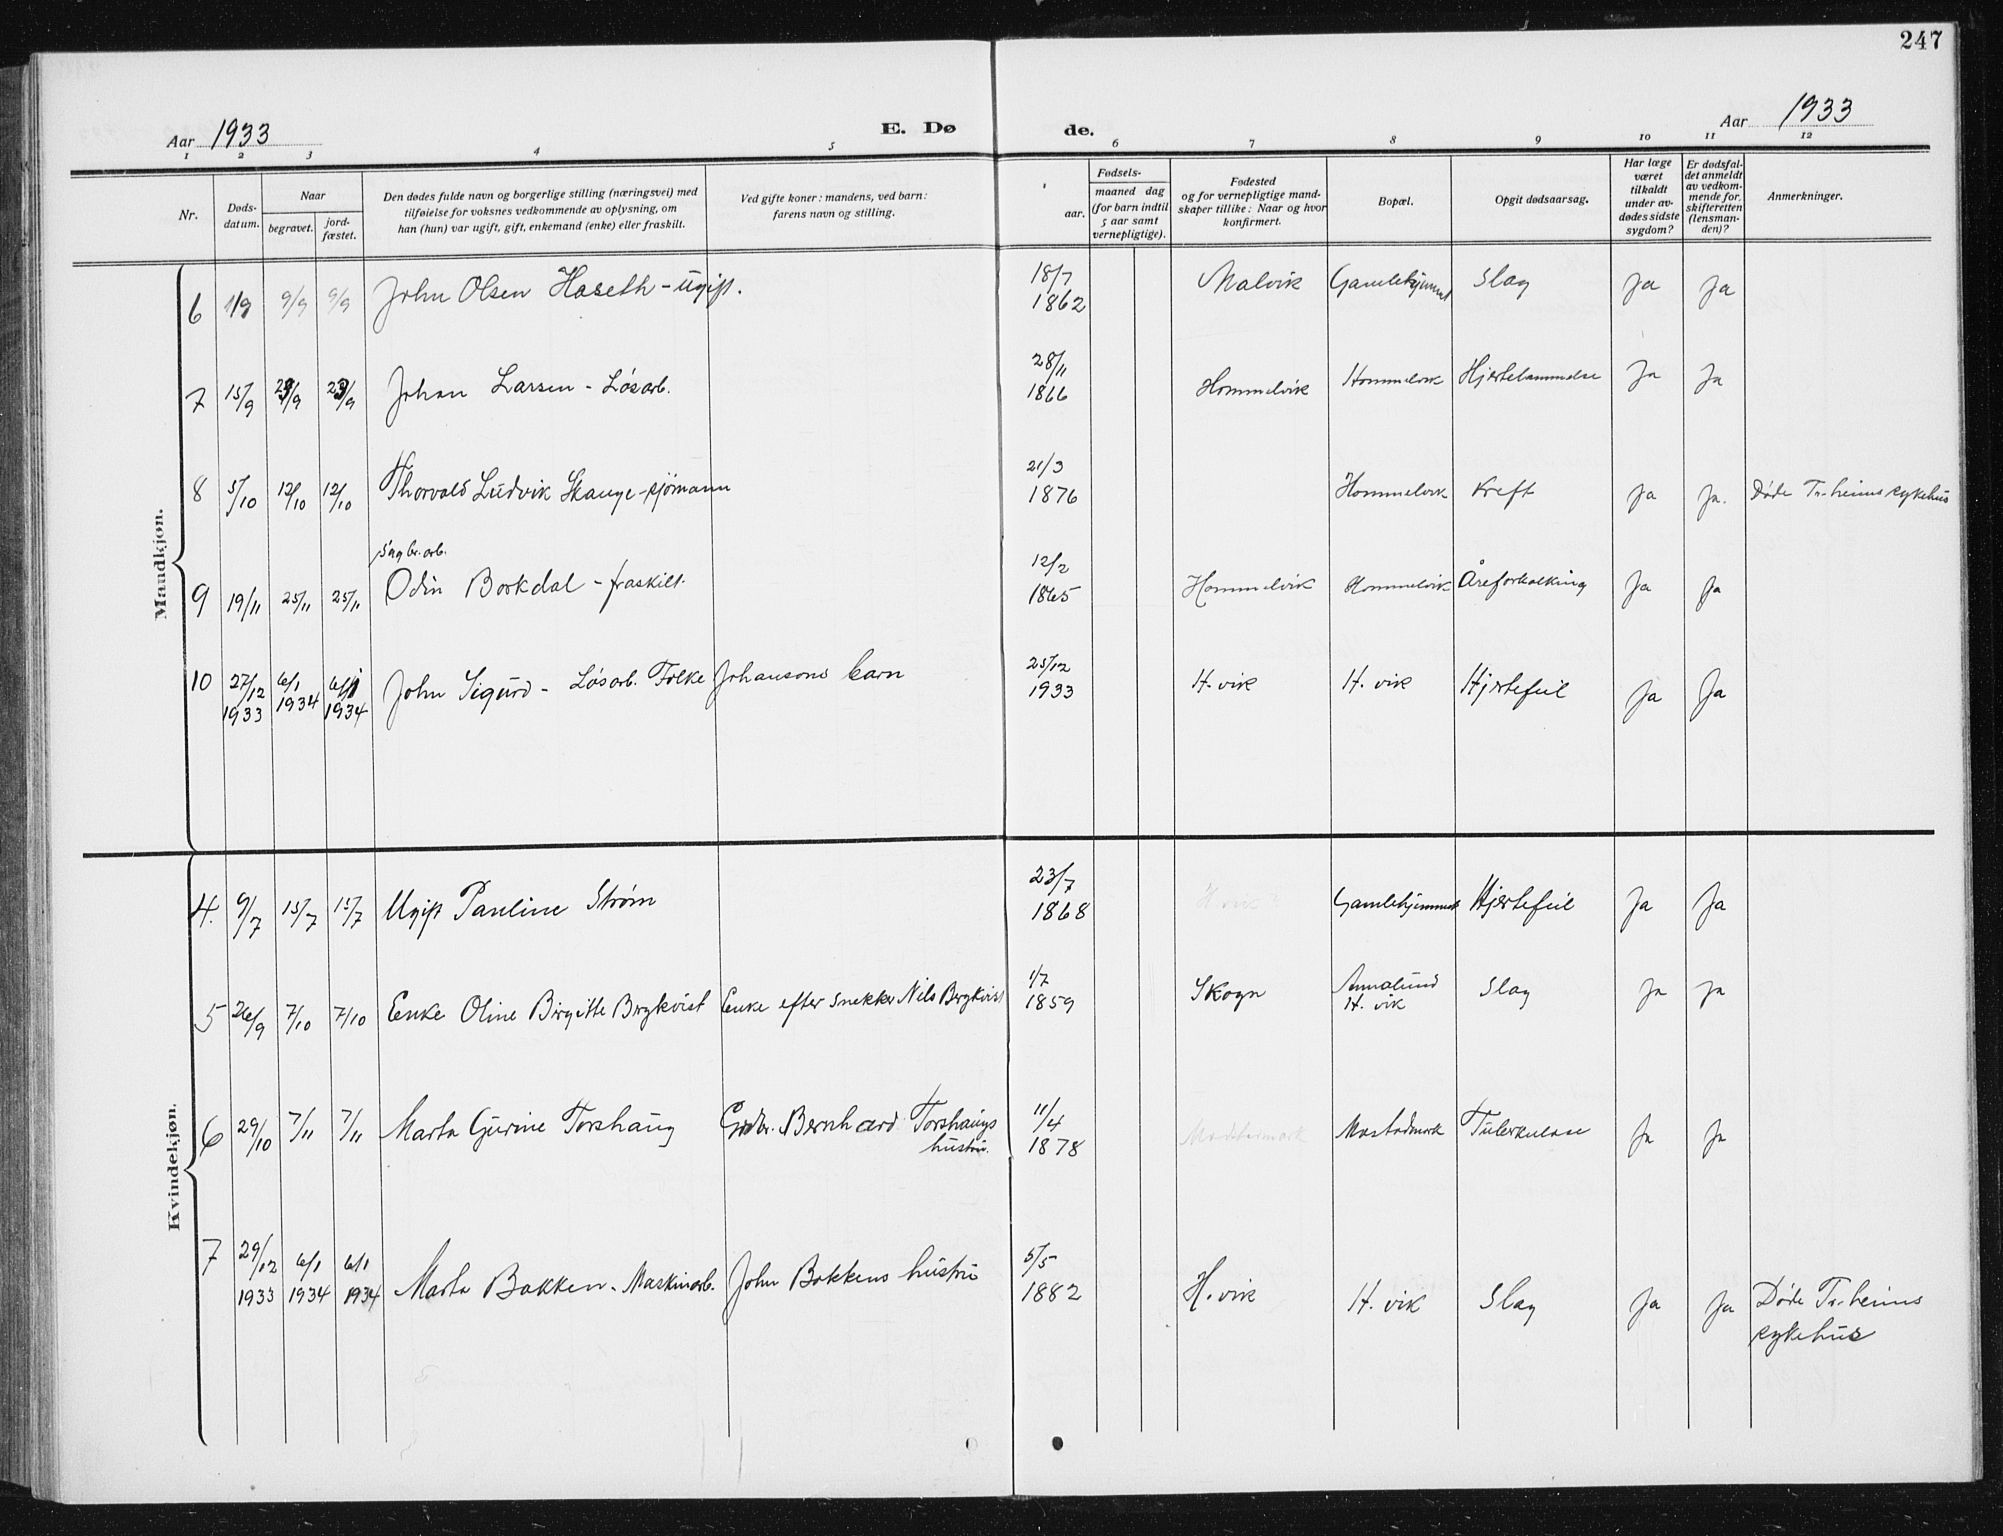 247
Aar 1933
E. Dø
de.
Aar 1933
1 2 3 4 5 6 7 8 9 10 11 12
Nr.
Døds-
datum.
Naar
begravet.
jord-
fæstet.
Den dødes fulde navn og borgerlige stilling (næringsvei) med
tilføielse for voksnes vedkommende av oplysning, om
han (hun) var ugift, gift, enkemand (enke) eller fraskilt.
Ved gifte koner: mandens, ved barn:
farens navn og stilling.
Fødsels-
aar.
maaned dag
(for barn indtil
5 aar samt
vernepligtige).
Fødested
og for vernepligtige mand-
skaper tillike: Naar og hvor
konfirmert.
Bopæl.
Opgit dødsaarsag.
Har læge
været
tilkaldt
under av-
dødes sidste
sygdom?
Er dødsfal-
det anmeldt
av vedkom-
mende for
skifteretten
(lensman-
den)?
Anmerkninger.
Mandkjøn.
6 1/9 9/9 9/9 John Olsen Haseth - ugift. 18/7 1862 Malvik Gamlehjemmet Slag Ja Ja
7 15/9 23/9 23/9 Johan Larsen - Løsarb. 28/11 1866 Hommelvik Hommelvik Hjertelammelse Ja Ja
8 5/10 12/10 12/10 Thorvald Ludvik Skauge - sjömann 21/3 1876 Hommelvik Kreft Ja Ja. Døde Tr.heims sykehus
Sagbr.arb.
9 19/11 25/11 25/11 Odin Borkdal - fraskilt. 12/2 1865 Hommelvik Hommelvik Åreforkalkning Ja Ja
10 27/12 1933 6/1 1934 6/1 1934 John Sigurd - Løsarb. Folke Johansons barn 25/12 1933 H. vik H. vik Hjertefeil Ja Ja
Kvindekjøn.
4. 9/7 15/7 15/7 Ugift Pauline Strøm 23/7 1868 H.vik? Gamlehjemmet Hjertefeil Ja Ja
5 26/9 7/10 7/10 Enke Oline Birgitte Bergkvist Enke efter Snekker Nils Bergkvist 1/7 1859 Skogn Annalund H. vik Slag Ja Ja
6 29/10 7/11 7/11 Marta Gurine Torshaug Grdbr. Bernhard Torshaugs hustru. 11/4 1878 Mostadmark Mostadmark Tuberkulose Ja Ja
7 29/12 1933 6/1 1934 6/1 1934 Marta Bakken. Maskinarb. John Bakkens hustru 5/5 1882 H. vik H. vik Slag Ja Ja Døde Tr.heims
sykehus